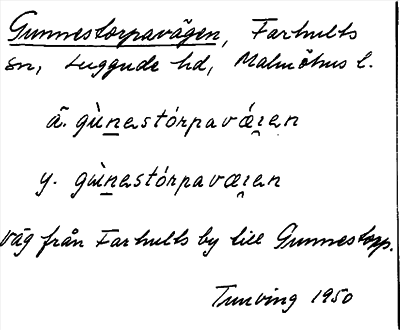 Gunnestorpavägen, Farhults
sn, Luggude hd, Malmöhus l.
ä. gùnastórpavǽi̯an
y. gùnastórpaværi̯an
väg från Farhults by till Gunnestorp.
Tunving 1950